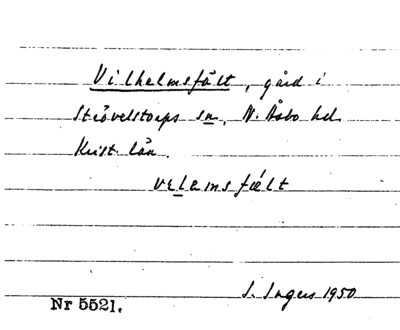 Vilhelmsfält, gård i
Strövelstorps sn, N. Åsbo hd.
Krist. län.
velamsfält
I. Ingers 1950
Nr 5521.